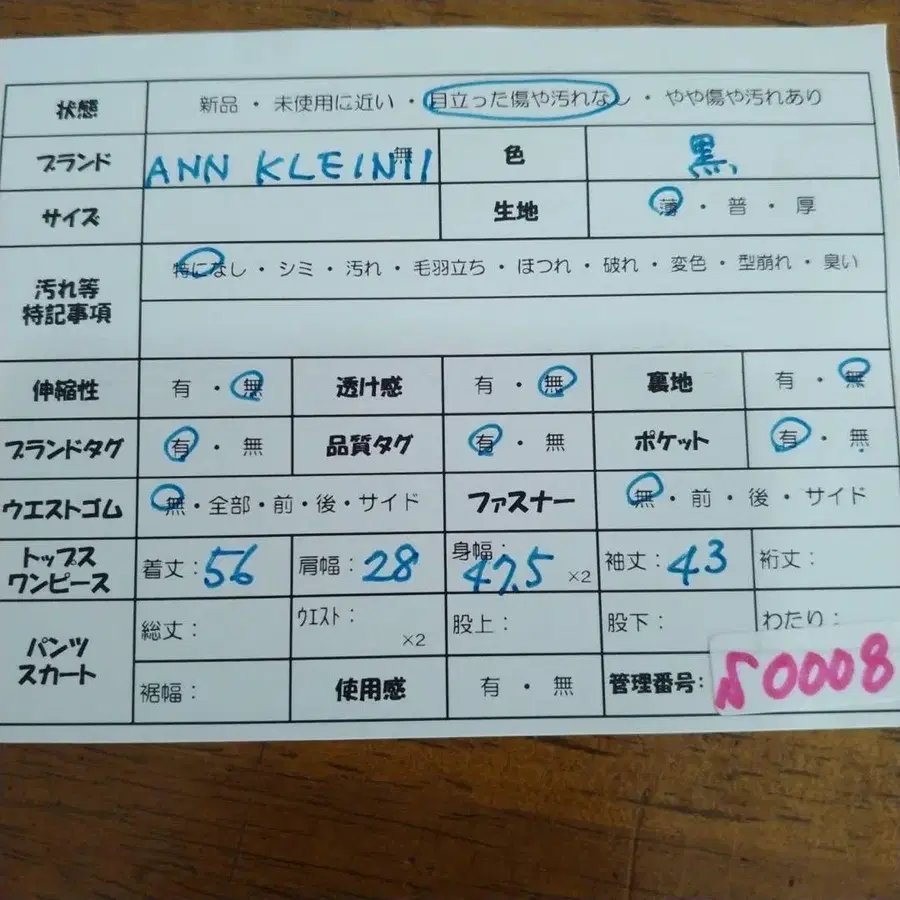 状態 新品 ・ 未使用に近い ・ 目立った傷や汚れなし ・ やや傷や汚れあり
ブランド ANN KLEINII 無 色 黒
サイズ 生地 薄 ・ 普 ・ 厚
汚れ等 特記事項 特になし ・ シミ ・ 汚れ ・ 毛羽立ち ・ ほつれ ・ 破れ ・ 変色 ・ 型崩れ ・ 臭い
伸縮性 有 ・ 無 透け感 有 ・ 無 裏地 有 ・ 無
ブランドタグ 有 ・ 無 品質タグ 有 ・ 無 ポケット 有 ・ 無
ウエストゴム 無・全部・前・後・サイド ファスナー 無 ・ 前 ・ 後 ・ サイド
トップス ワンピース 着丈：56 肩幅：28 身幅：47.5 ×2 袖丈：43 裄丈：
パンツ スカート 総丈： ウエスト： ×2 股上： 股下： わたり：
裾幅： 使用感 有 ・ 無 管理番号： 0008